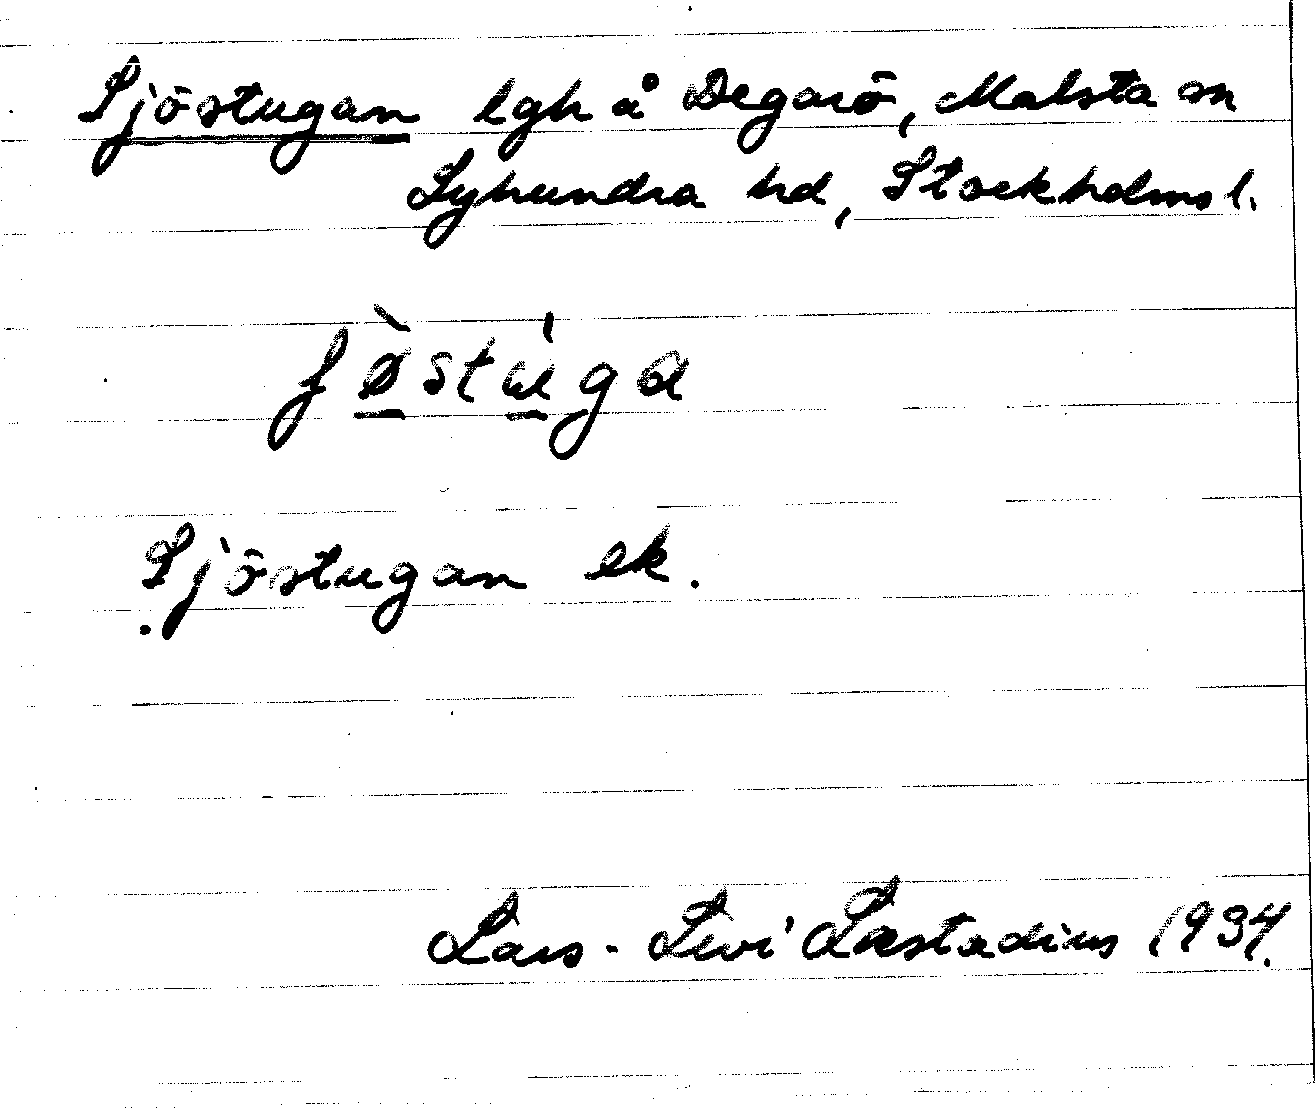 Sjöstugan lgh å Degarö, Malsta sn
Lyhundra hd, Stockholms l.
ʃø̀stúga
Sjöstugan ek.
Lars-Levi Læstadius 1934.